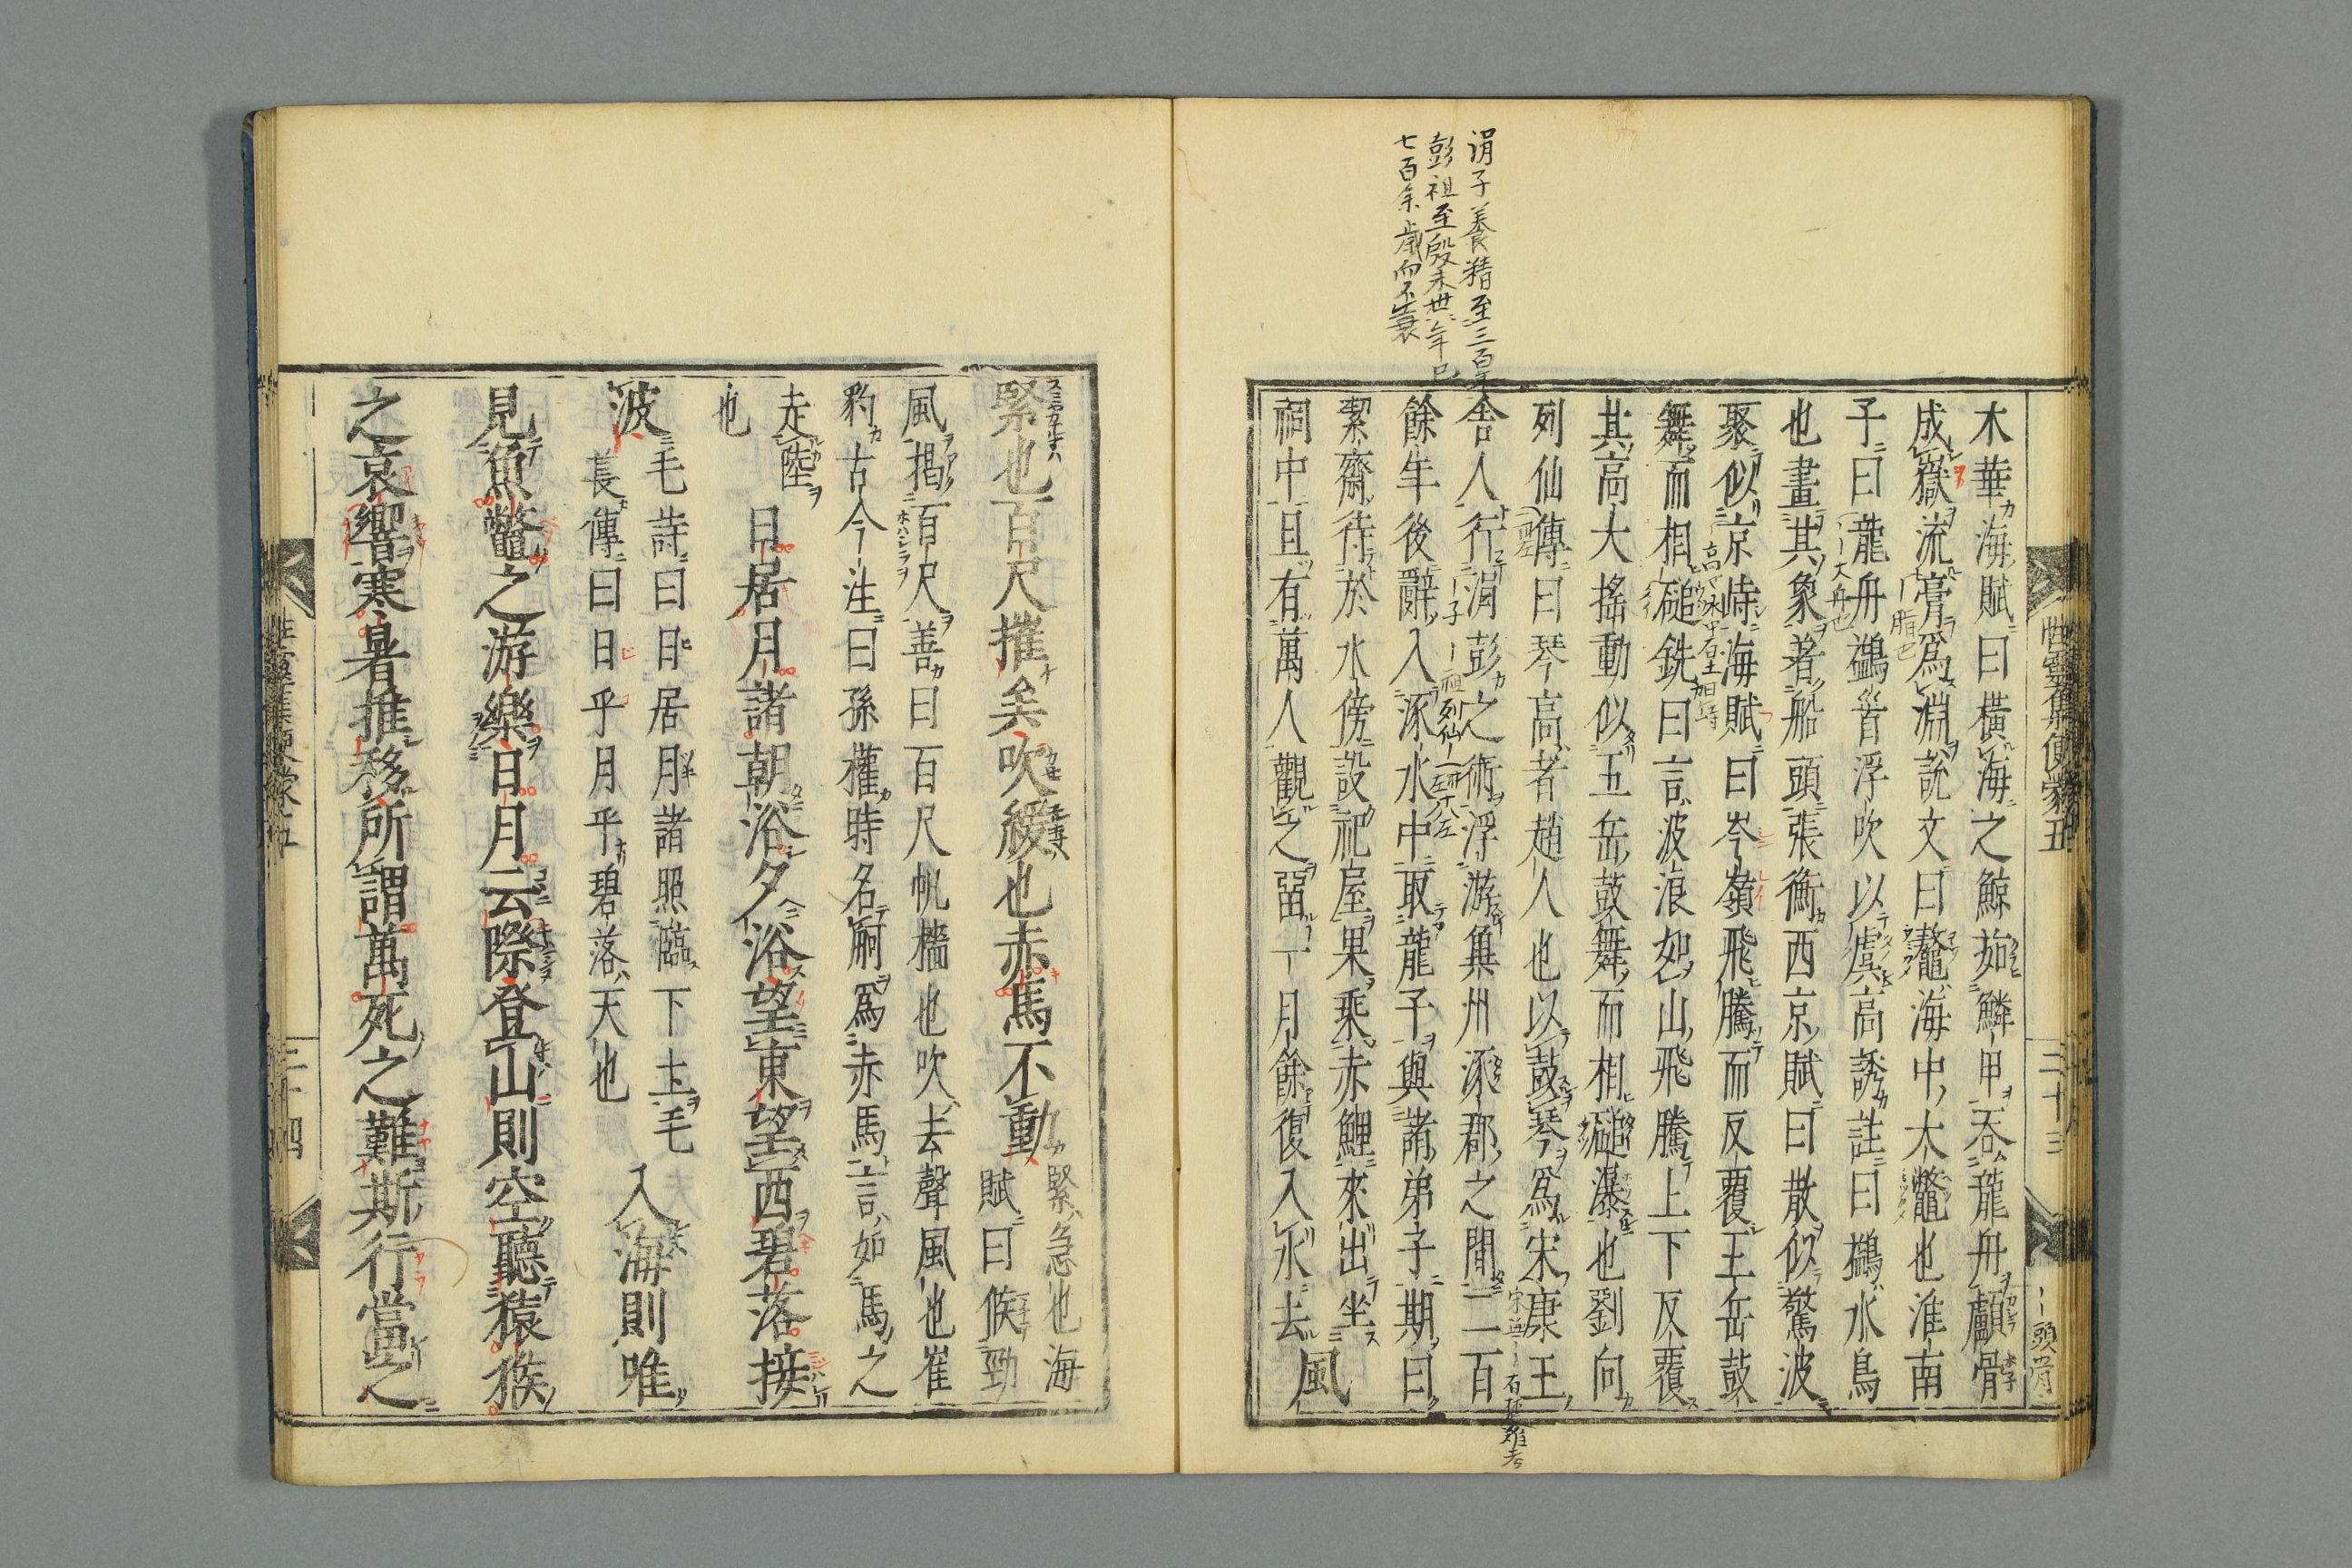 涓子養精至三百年
彭祖至殷末世年已
七百余歳而不衰
性靈集便蒙五
三十三
木華海賦曰橫海之鯨茹鱗甲吞龍舟顱骨
成嶽流膏爲淵說文曰鼇海中大鼈也淮南
子曰龍舟鷁首浮吹以虞高誘註曰鷁水鳥
也畫其象著船頭張衡西京賦曰散似驚波
聚似京峙海賦曰岑嶺飛騰而反覆王岳鼓
舞而相磓銑曰言波浪如山飛騰上下反覆
其高大搖動似五岳鼓舞而相磓瀑也劉向
列仙傳曰琴高者趙人也以鼓琴爲宋康王
舍人行涓彭之術浮游冀州涿郡之間二百
餘年後辭入涿水中取龍子與諸弟子期曰
潔齋待於水傍設祀屋果乘赤鯉來出坐
祠中且有萬人觀之留一月餘復入水去 風
緊也百尺摧矣吹緩也赤馬不動 緊急也海
賦曰候勁
風揭百尺善曰百尺帆檣也吹去聲風也崔
豹古今注曰孫權時名舸爲赤馬言如馬之
走陸
也 日居月諸朝浴夕浴望東望西碧落接
波 毛詩曰日居月諸照臨下土毛
萇傳曰日乎月乎碧落天也 入海則唯
見魚鼈之游樂日月云際登山則空聽猿猴
之哀響寒暑推移所謂萬死之難斯行當之
三十四